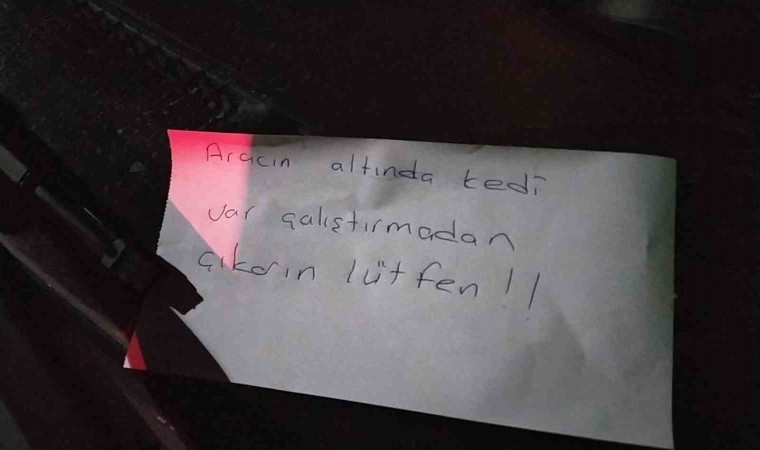 Aracın altında kedi
var çalıştırmadan
çıkarın lütfen!!